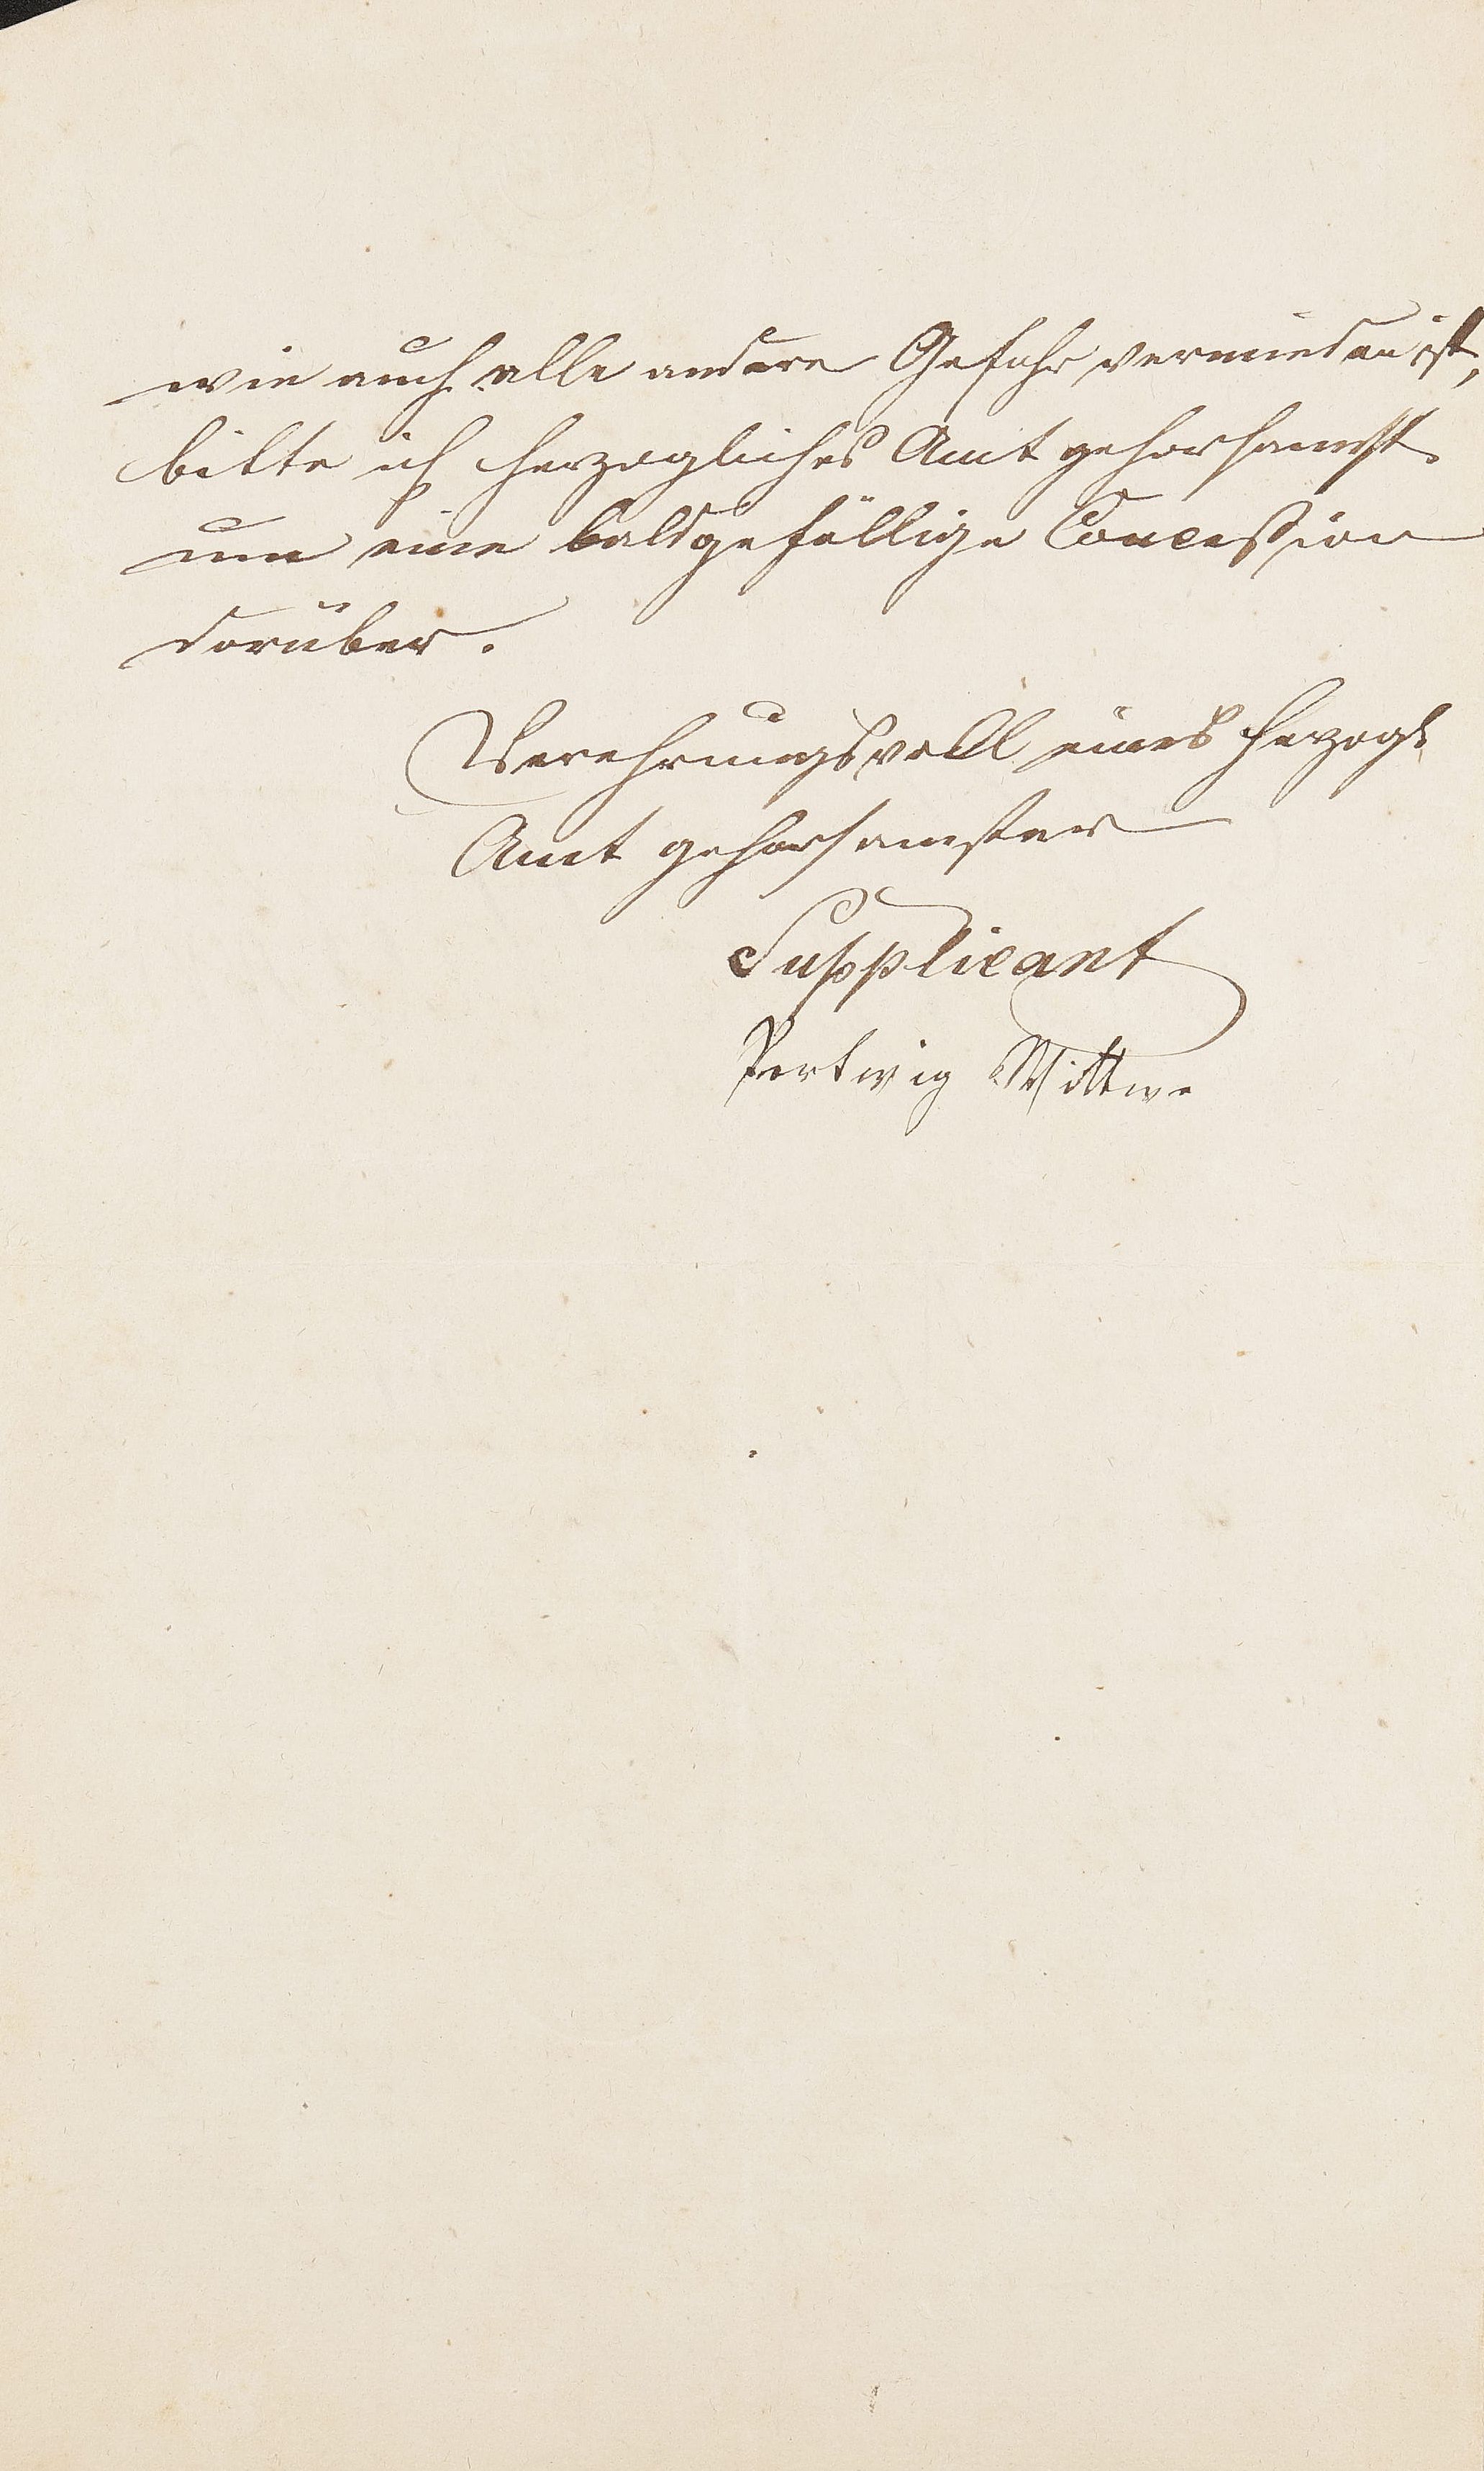 wie auch alle andere Gefahr vermieden ist,
bitte ich Herzogliches Amt gehorsamst
um eine baldgefällige Concession
darüber.
Verehrungsvoll eines Herzogl.
Amt gehorsamster
Supplicant
Wittwe